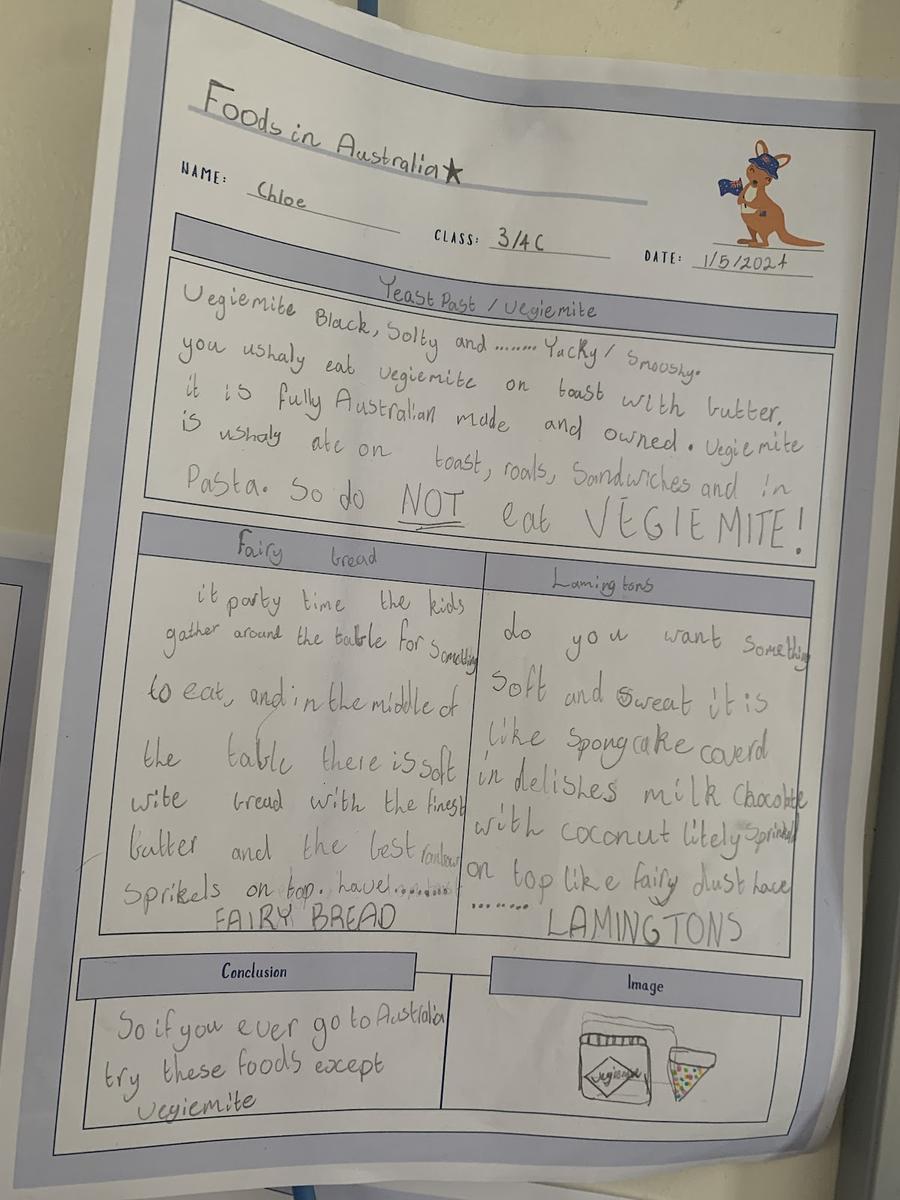 Foods in Australia★
NAME: Chloe
CLASS: 3/4C
DATE: 1/5/2024
Yeast Past / Vegiemite
Vegiemite Black, Solty and ........ Yucky / Smooshy.
you ushaly eat vegiemite on toast with butter.
it is fully Australian made and owned. Vegiemite
is ushaly ate on toast, roals, Sandwiches and in
Pasta. So do NOT eat VEGIEMITE!
Fairy bread
it party time the kids
gather around the table for Something
to eat, and in the middle of
the table there is soft
wite bread with the finest
butter and the best rainbow
Sprikels on top. have!........
FAIRY BREAD
Lamingtons
do you want Something
Soft and Sweat it is
like Spongcake coverd
in delishes milk Chocolate
with coconut litely
on top like fairy dust have
........ LAMINGTONS
Conclusion
So if you ever go to Australia
try these foods except
Vegiemite
Image
Vegiemite